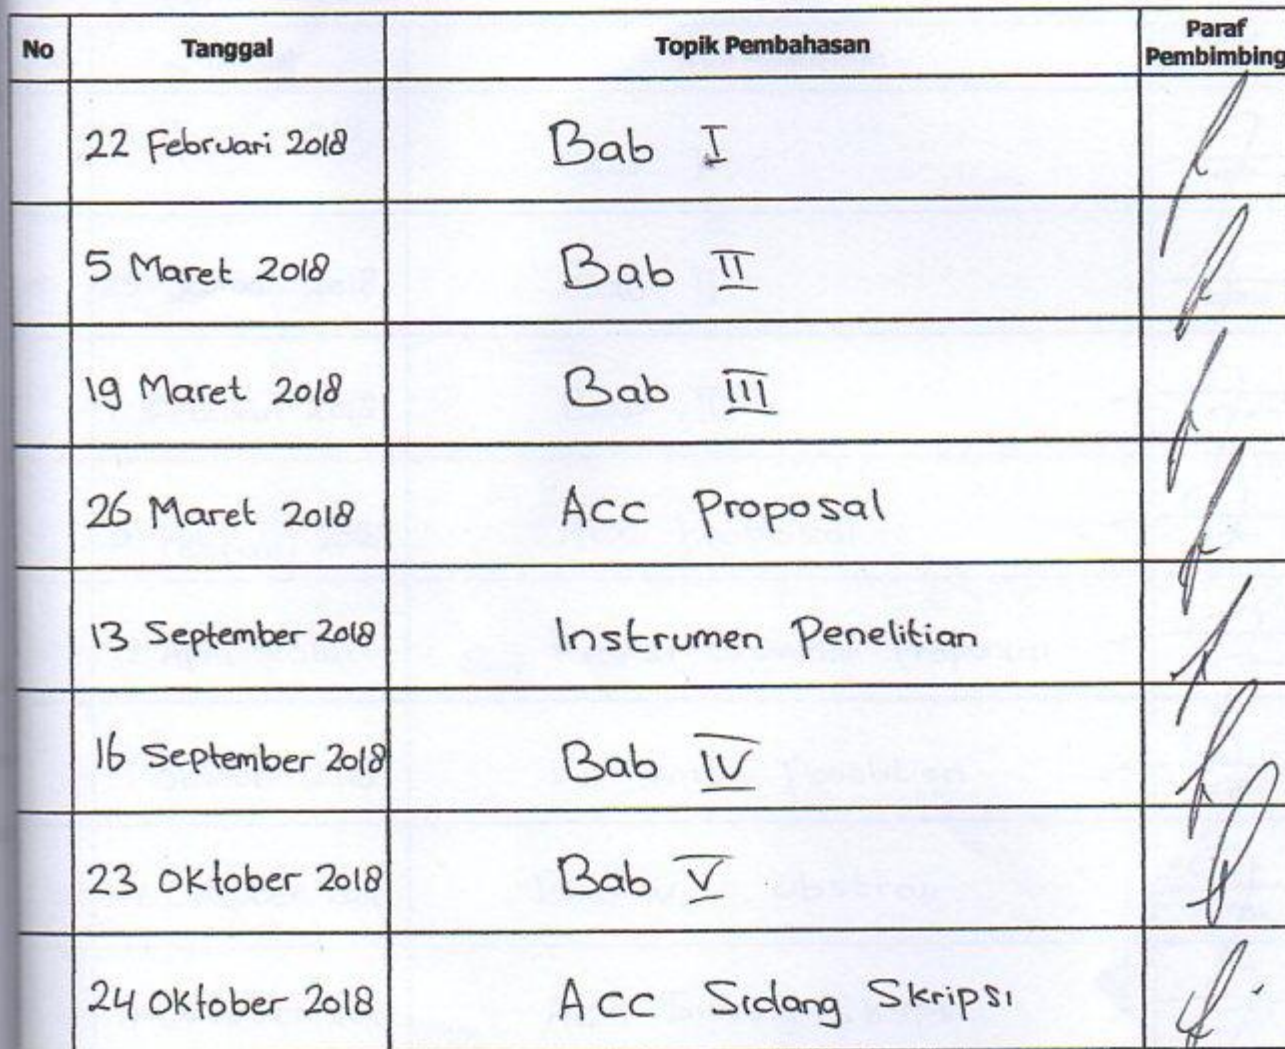 No Tanggal Topik Pembahasan Paraf Pembimbing
22 Februari 2018 Bab I
5 Maret 2018 Bab II
19 Maret 2018 Bab III
26 Maret 2018 Acc Proposal
13 September 2018 Instrumen Penelitian
16 September 2018 Bab IV
23 Oktober 2018 Bab V
24 Oktober 2018 Acc Sidang Skripsi